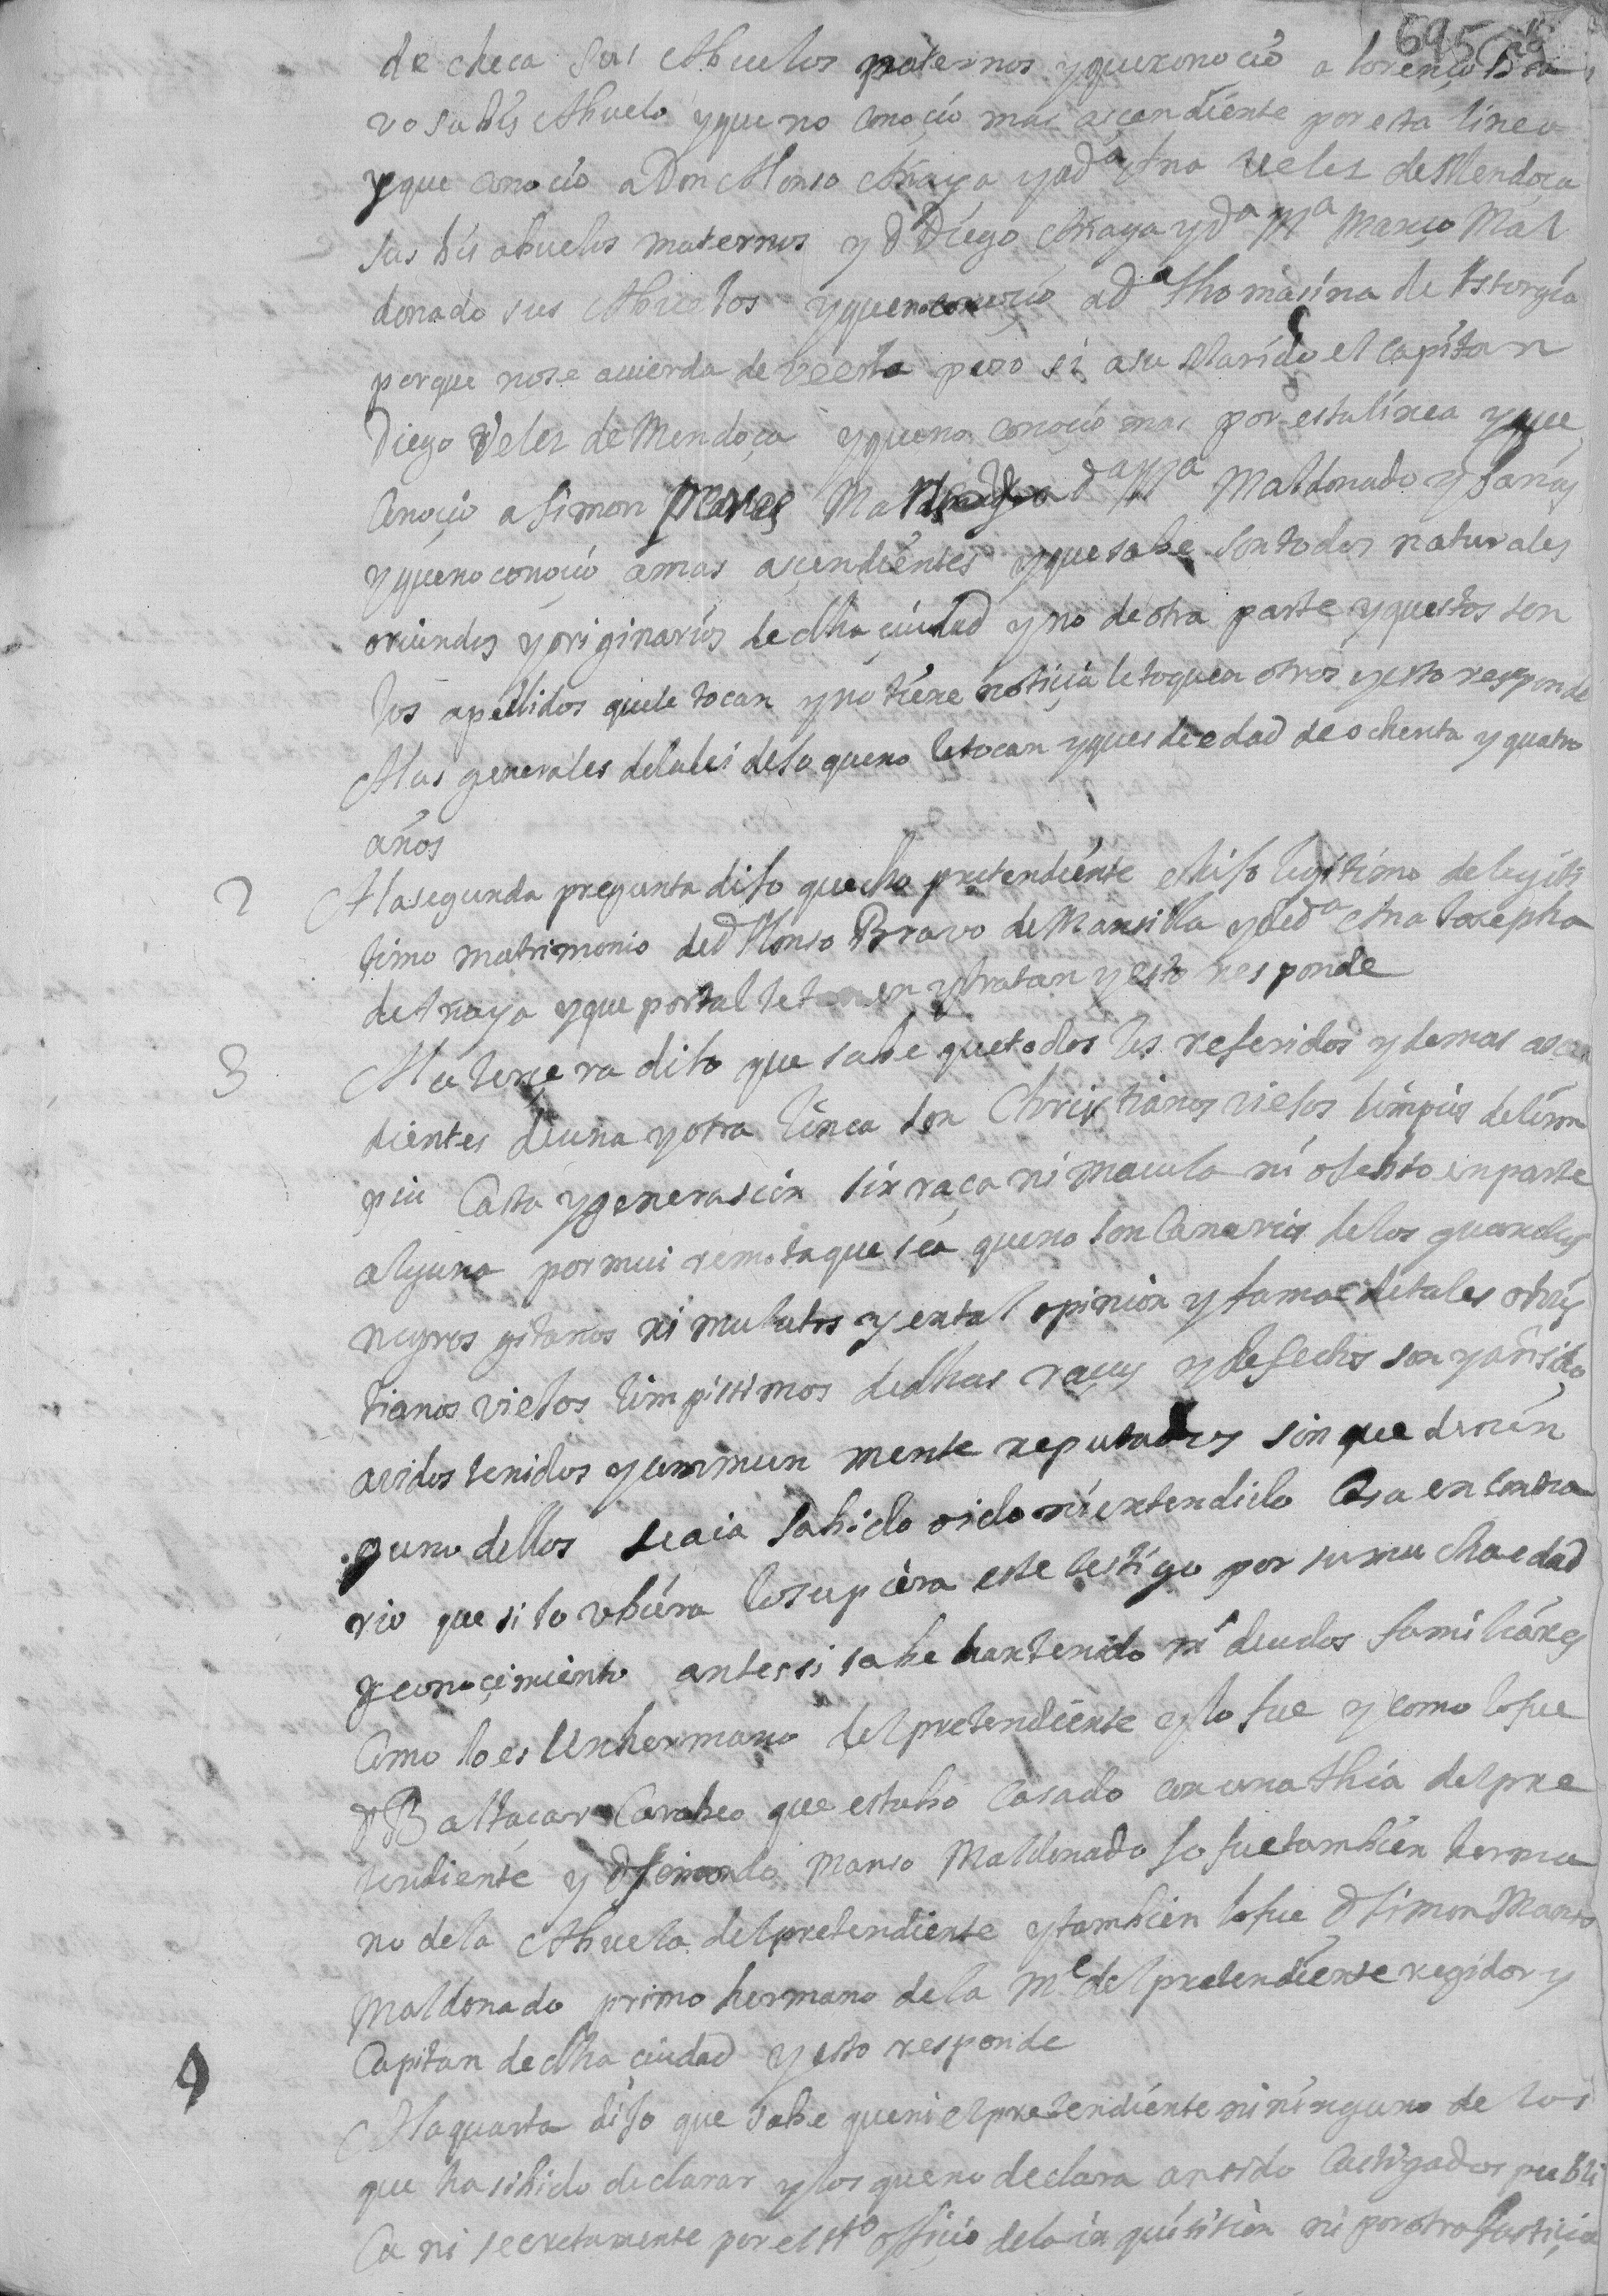 695
de checa sus Abuelos paternos y que conoció a lorenço Bra
vo su bis Abuelo y que no conoçio mas açendiente por esta linea
y que conocio a Don Alonso Anaya y a dª Ana Veles de Mendoça
sus bis abuelos maternos y d Diego Anaya y dª Mª Março Mal
donado sus Abuelos y que no conoçio a dª Thomasina de Astorgia
porque no se acuerda de veerla pero si a su Marido el Capitan
Diego Veles de Mendoça y que no conoçio mas por esta linea y que
Conoçio a simon dª Mª Maldonado y
y que no conoçio a mas açendientes y que sabe son todos naturales
oriundos y originarios de dha çiudad y no de otra parte y questos son
los apellidos que le tocan y no tiene notiçia le toquen otros y esto responde
A las generales de la lei dijo que no le tocan y que es de edad de ochenta y quatro
años
2 A la segunda pregunta dijo que dho pretendiente es hijo legitimo de legiti
timo matrimonio de d Alonso Bravo de Mansilla y de dª Ana Josepha
de Anaya y que por tal le tienen y tratan y esto responde
3 A la terçera dijo que sabe que todos los referidos y demas asen
dientes de una y otra linea son Christianos viejos limpios de limn
pia Casta y generasion sin raça ni macula ni defecto en parte
alguna por mui remota que sea que no son Canarios de los guanches
negros gitanos ni mulatos y en tal opinion y fama de tales chris
tianos viejos limpissimos de dhas raças y defectos son y an sido
avidos tenidos y commun mente reputados sin que de nin
guno dellos se aia sabido oido ni entendido Cosa en Contra
rio que si lo ubiera lo supiera este testigo por su mucha edad
y conoçimiento antes si sabe han tenido deudos familiares
Como lo es Un hermano del pretendiente y lo fue y como lo fue
d Baltaçar que estubo Casado con una thia del pre
tendiente y d Manso Maldonado lo fue tambien herma
no de la Abuela del pretendiente y tambien lo fue d simon Manso
Maldonado primo hermano de la Me del pretendiente regidor y
Capitan de dha çiudad y esto responde
4 A la quarta dijo que sabe que ni el pretendiente ni ninguno de los
que ha sibido declarar y los que no declara an sido Castigados publi
Ca ni secretamente por el sto offiçio de la inquisiçion ni por otra Justiçia